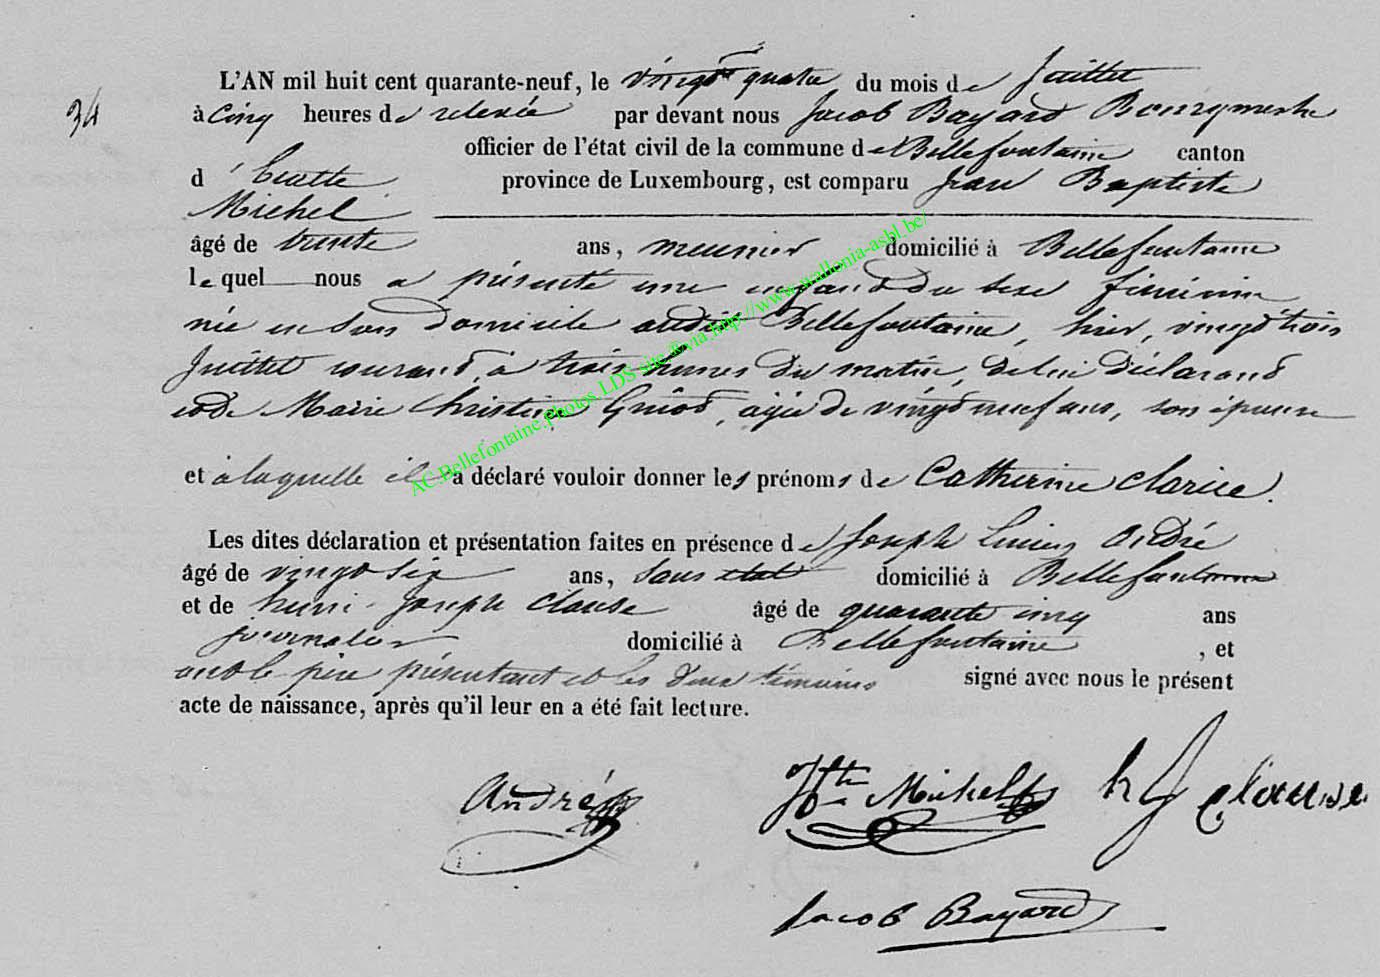 34
L'AN mil huit cent quarante-neuf, le vingt quatre du mois de Juillet
à cinq heures de relevée par devant nous Jacob Bayard Bourgmestre
officier de l'état civil de la commune de Bellefontaine canton
d'Etalle province de Luxembourg, est comparu Jean Baptiste
Michel
âgé de trente ans, meunier domicilié à Bellefontaine
lequel nous a présenté une enfant du sexe féminin
née en son domicile audit Bellefontaine, hier, vingt trois
Juillet courant, à trois heures du matin, de lui déclarant
et de Marie Christine, agée de vingt neuf ans, son épouse
et à laquelle il a déclaré vouloir donner les prénoms de Catherine Clarice.
Les dites déclaration et présentation faites en présence de Joseph Lucien André
âgé de vingt six ans, sans état domicilié à Bellefontaine
et de henri-Joseph Clause âgé de quarante cinq ans
journalier domicilié à Bellefontaine, et
ont le père présentant et les deux témoins signé avec nous le présent
acte de naissance, après qu'il leur en a été fait lecture.
André
JBte Michel
h J clause
Jacob Bayard
AC.Bellefontaine.photos LDS site @via http://www.wallonia-asbl.be/